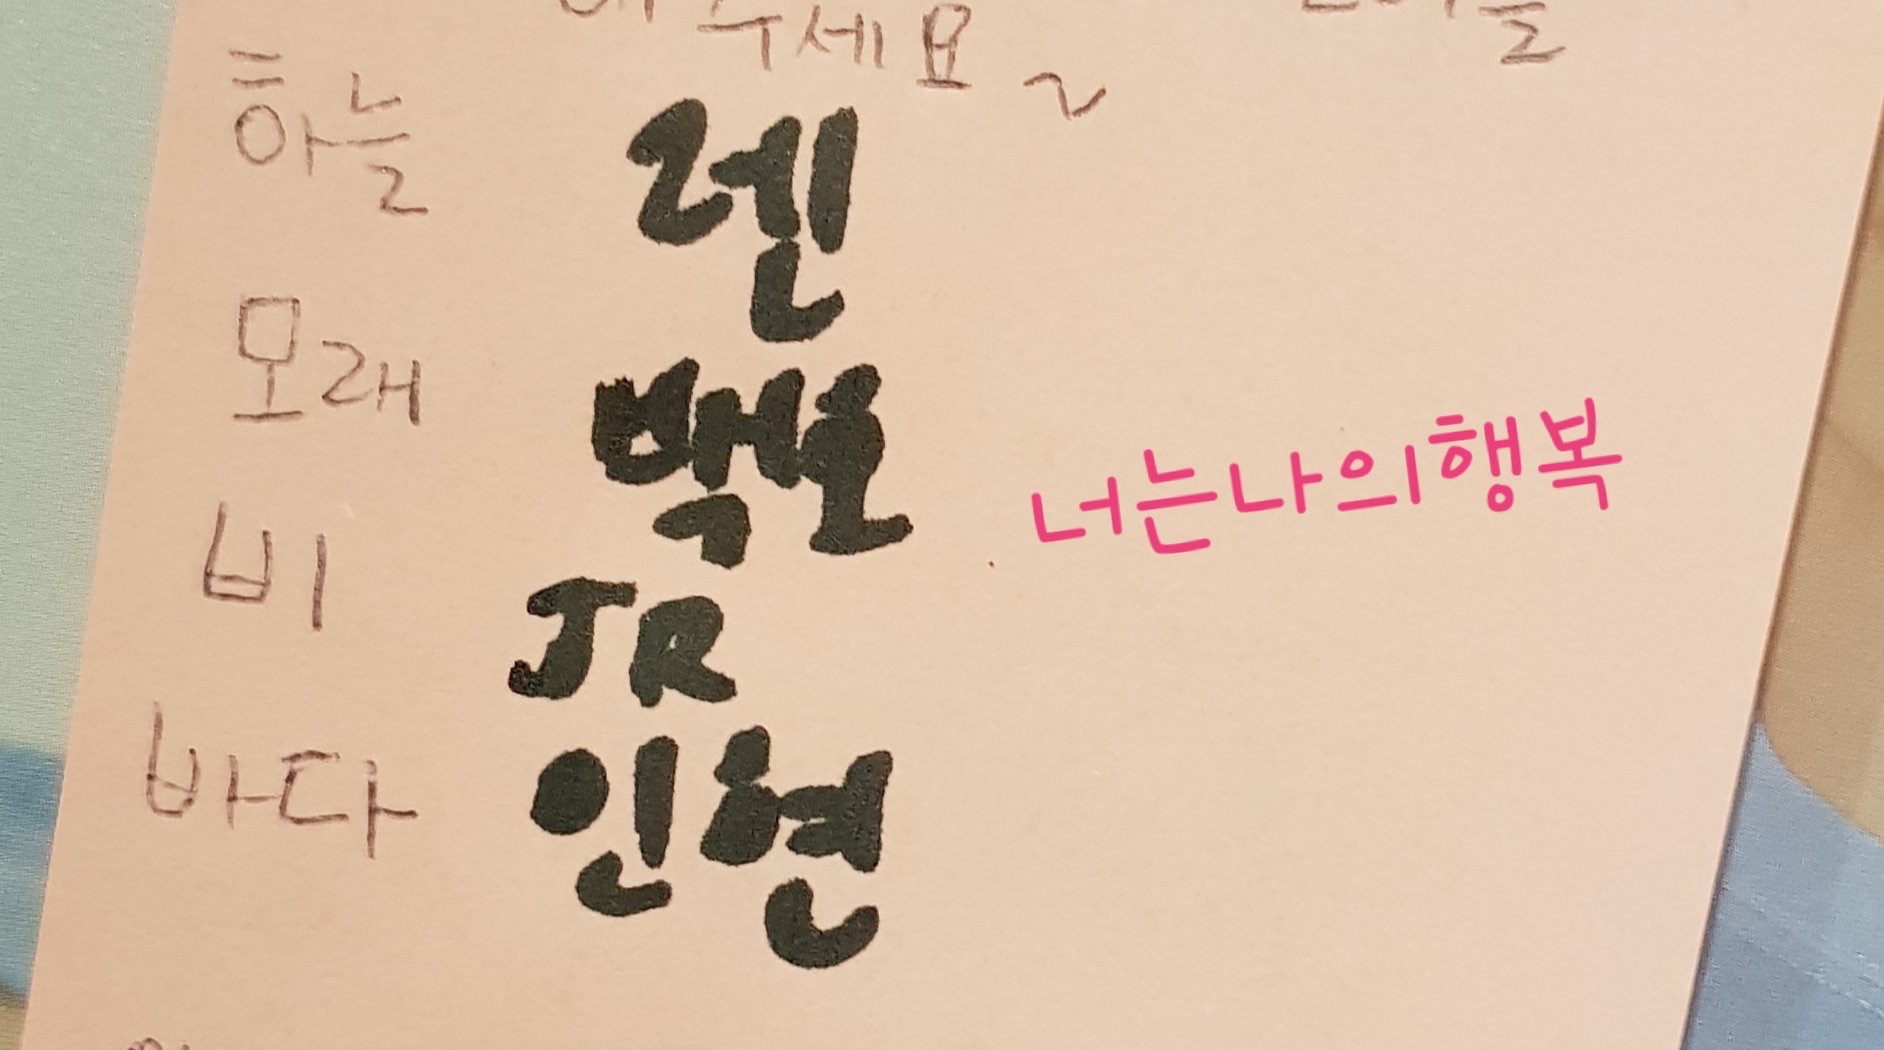 주세요~
하늘 렌
모래 백호
비 JR
바다 민현
너는나의행복